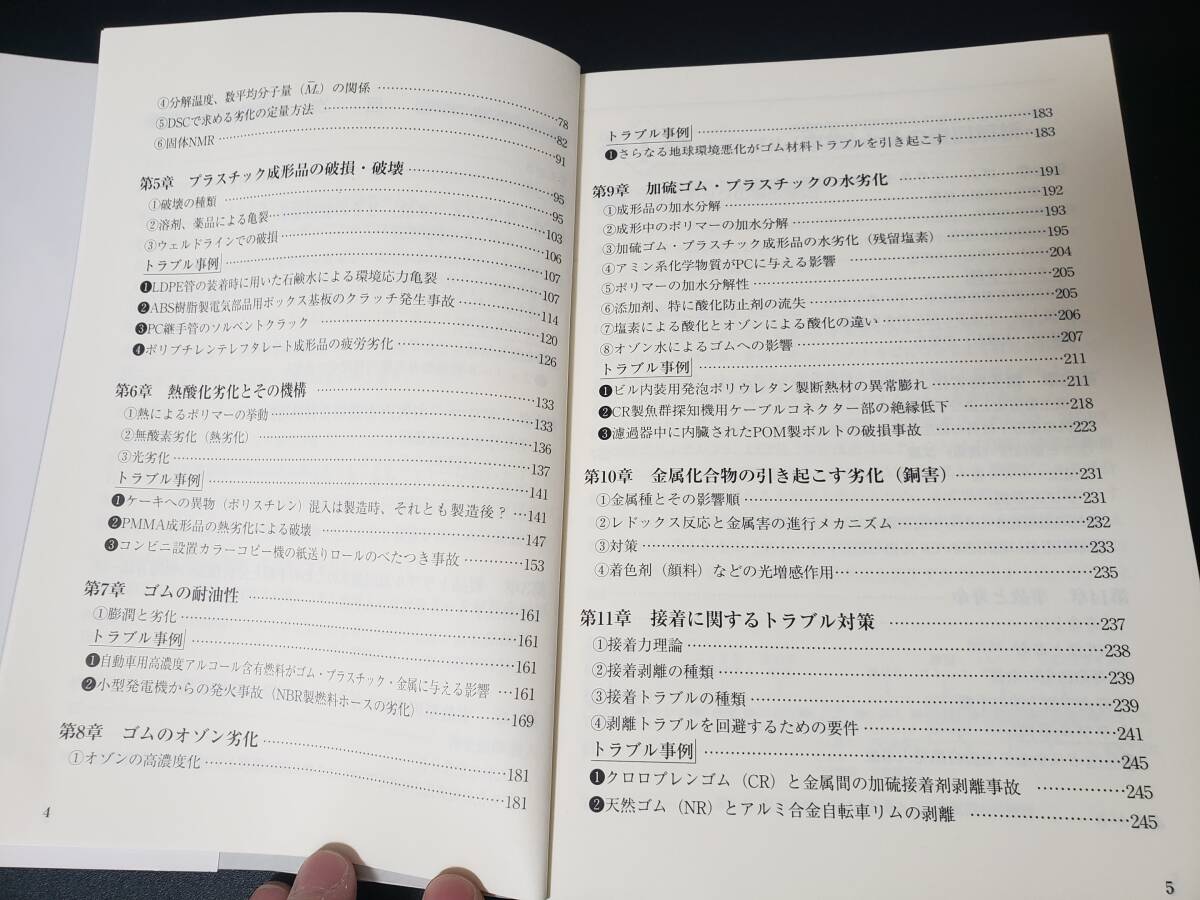 ④分解温度、数平均分子量（M̄n）の関係……78
⑤DSCで求める劣化の定量方法……82
⑥固体NMR……91
第5章　プラスチック成形品の破損・破壊……95
①破壊の種類……95
②溶剤、薬品による亀裂……103
③ウェルドラインでの破損……106
トラブル事例……107
❶LDPE管の装着時に用いた石鹸水による環境応力亀裂……107
❷ABS樹脂製電気部品用ボックス基板のクラッチ発生事故……114
❸PC継手管のソルベントクラック……120
❹ポリブチレンテレフタレート成形品の疲労劣化……126
第6章　熱酸化劣化とその機構……133
①熱によるポリマーの挙動……133
②無酸素劣化（熱劣化）……136
③光劣化……137
トラブル事例……141
❶ケーキへの異物（ポリスチレン）混入は製造時、それとも製造後？…141
❷PMMA成形品の熱劣化による破壊……147
❸コンビニ設置カラーコピー機の紙送りロールのべたつき事故……153
第7章　ゴムの耐油性……161
①膨潤と劣化……161
トラブル事例……161
❶自動車用高濃度アルコール含有燃料がゴム・プラスチック・金属に与える影響…161
❷小型発電機からの発火事故（NBR製燃料ホースの劣化）……169
第8章　ゴムのオゾン劣化……181
①オゾンの高濃度化……181
4
トラブル事例……183
❶さらなる地球環境悪化がゴム材料トラブルを引き起こす……183
第9章　加硫ゴム・プラスチックの水劣化……191
①成形品の加水分解……192
②成形中のポリマーの加水分解……193
③加硫ゴム・プラスチック成形品の水劣化（残留塩素）……195
④アミン系化学物質がPCに与える影響……204
⑤ポリマーの加水分解性……205
⑥添加剤、特に酸化防止剤の流失……205
⑦塩素による酸化とオゾンによる酸化の違い……206
⑧オゾン水によるゴムへの影響……207
トラブル事例……211
❶ビル内装用発泡ポリウレタン製断熱材の異常膨れ……211
❷CR製魚群探知機用ケーブルコネクター部の絶縁低下……218
❸濾過器中に内臓されたPOM製ボルトの破損事故……223
第10章　金属化合物の引き起こす劣化（銅害）……231
①金属種とその影響順……231
②レドックス反応と金属害の進行メカニズム……232
③対策……233
④着色剤（顔料）などの光増感作用……235
第11章　接着に関するトラブル対策……237
①接着力理論……238
②接着剥離の種類……239
③接着トラブルの種類……239
④剥離トラブルを回避するための要件……241
トラブル事例……245
❶クロロプレンゴム（CR）と金属間の加硫接着剤剥離事故……245
❷天然ゴム（NR）とアルミ合金自転車リムの剥離……245
5